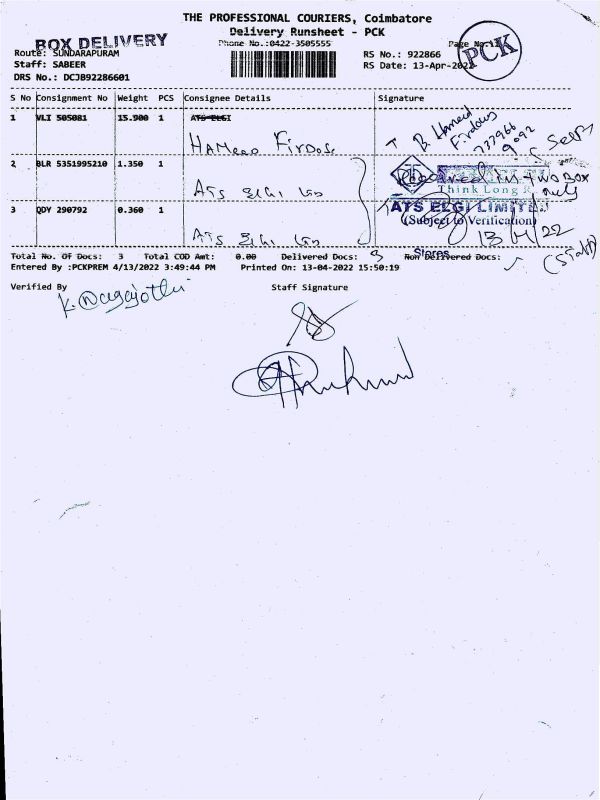 THE PROFESSIONAL COURIERS, Coimbatore
Delivery Runsheet - PCK
BOX DELIVERY
Phone No.:0422-3505555
Page No.:1
PCK
Route: SUNDARAPURAM
RS No.: 922866
Staff: SABEER
RS Date: 13-Apr-2022
DRS No.: DCJB92286601
S No Consignment No Weight PCS Consignee Details Signature
1 VLI 505081 15.900 1 ATS ELGI
HAMeeD FIRDose
B. Hameed
Firdows
(Self)
2 BLR 5351995210 1.350 1
ATS ELGI LTD
Received in two Box
only
Think Long
3 QDY 290792 0.360 1
ATS ELGI LIMITED
(Subject to Verification)
ATS ELGI LTD
13/4/22
Stores
(Staff)
Total No. Of Docs: 3 Total COD Amt: 0.00 Delivered Docs: 3 Non Delivered Docs:
Entered By :PCKPREM 4/13/2022 3:49:44 PM Printed On: 13-04-2022 15:50:19
Verified By Staff Signature
K. Nagajothi